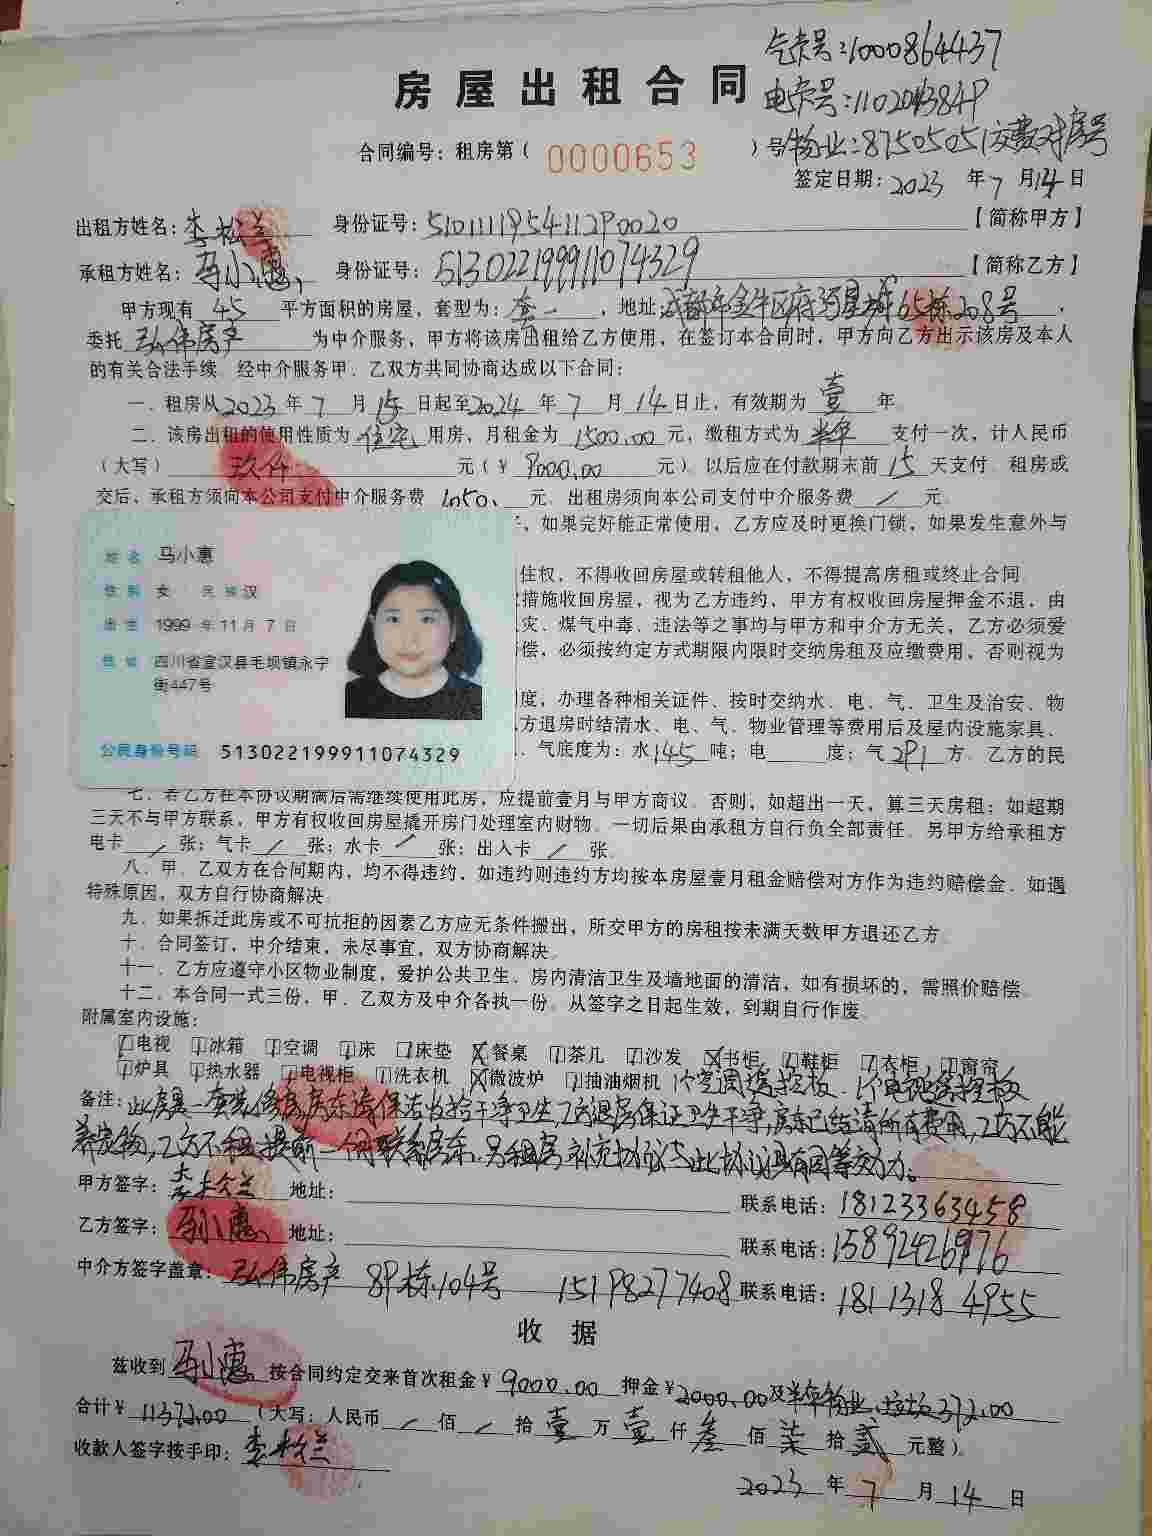 气卡号:1000864437
房屋出租合同
电卡号:110204384P
合同编号:租房第( 0000653 )号 物业:87505051交费对房号
签定日期:2023 年 7 月 14 日
出租方姓名:李松兰 身份证号:510111195411290020 【简称甲方】
承租方姓名:马小惠 身份证号:513022199911074329 【简称乙方】
甲方现有 45 平方面积的房屋，套型为:套一，地址:成都市金牛区府河星城65栋208号.
委托 弘伟房产 为中介服务，甲方将该房出租给乙方使用，在签订本合同时，甲方向乙方出示该房及本人
的有关合法手续. 经中介服务甲、乙双方共同协商达成以下合同:
一、租房从2023年 7 月 15 日起至2024 年 7 月 14 日止，有效期为 壹 年
二、该房出租的使用性质为 住宅 用房，月租金为 1500.00 元，缴租方式为 半年 支付一次，计人民币
（大写） 玖仟 元（￥ 9000.00 元）. 以后应在付款期末前 15 天支付. 租房成
交后，承租方须向本公司支付中介服务费 1050. 元. 出租房须向本公司支付中介服务费 / 元.
，如果完好能正常使用，乙方应及时更换门锁，如果发生意外与
姓名 马小惠
住权，不得收回房屋或转租他人，不得提高房租或终止合同
性别 女 民族 汉
措施收回房屋，视为乙方违约，甲方有权收回房屋押金不退，由
出生 1999 年 11 月 7 日
灾、煤气中毒、违法等之事均与甲方和中介方无关，乙方必须爱
住址 四川省宣汉县毛坝镇永宁
偿，必须按约定方式期限内限时交纳房租及应缴费用，否则视为
街447号
度，办理各种相关证件、按时交纳水、电、气、卫生及治安、物
方退房时结清水、电、气、物业管理等费用后及屋内设施家具、
公民身份号码 513022199911074329
、气底度为:水145吨;电 度;气 291 方. 乙方的民
七、若乙方在本协议期满后需继续使用此房，应提前壹月与甲方商议. 否则，如超出一天，算三天房租;如超期
三天不与甲方联系，甲方有权收回房屋撬开房门处理室内财物. 一切后果由承租方自行负全部责任. 另甲方给承租方
电卡 / 张;气卡 / 张;水卡 / 张;出入卡 / 张.
八、甲、乙双方在合同期内，均不得违约，如违约则违约方均按本房屋壹月租金赔偿对方作为违约赔偿金. 如遇
特殊原因，双方自行协商解决.
九、如果拆迁此房或不可抗拒的因素乙方应无条件搬出，所交甲方的房租按未满天数甲方退还乙方.
十、合同签订，中介结束，未尽事宜，双方协商解决.
十一、乙方应遵守小区物业制度，爱护公共卫生、房内清洁卫生及墙地面的清洁，如有损坏的，需照价赔偿.
十二、本合同一式三份，甲、乙双方及中介各执一份. 从签字之日起生效，到期自行作废.
附属室内设施:
电视 冰箱 空调 床 床垫 餐桌 茶几 沙发 书柜 鞋柜 衣柜 窗帘
炉具 热水器 电视柜 洗衣机 微波炉 抽油烟机 1个空调摇控板. 1个电视摇控板
备注:此房是一套装修房,房东请保洁收拾干净卫生,乙方退房保证卫生干净,房东已结清所有费用,乙方不能
养宠物,乙方不租提前一个月联系房东.另租房补充协议与此协议具有同等效力。
甲方签字: 李松兰 地址: 联系电话: 18123363458
乙方签字: 马小惠 地址: 联系电话: 15892426976
中介方签字盖章: 弘伟房产 89栋104号 15198277408 联系电话: 18113184955
收 据
兹收到 马小惠 按合同约定交来首次租金￥ 9000.00 押金￥2000.00及半年物业、垃圾372.00
合计￥ 11372.00 （大写: 人民币 / 佰 / 拾 壹 万 壹 仟 叁 佰 柒 拾 贰 元整）.
收款人签字按手印: 李松兰
2023 年 7 月 14 日